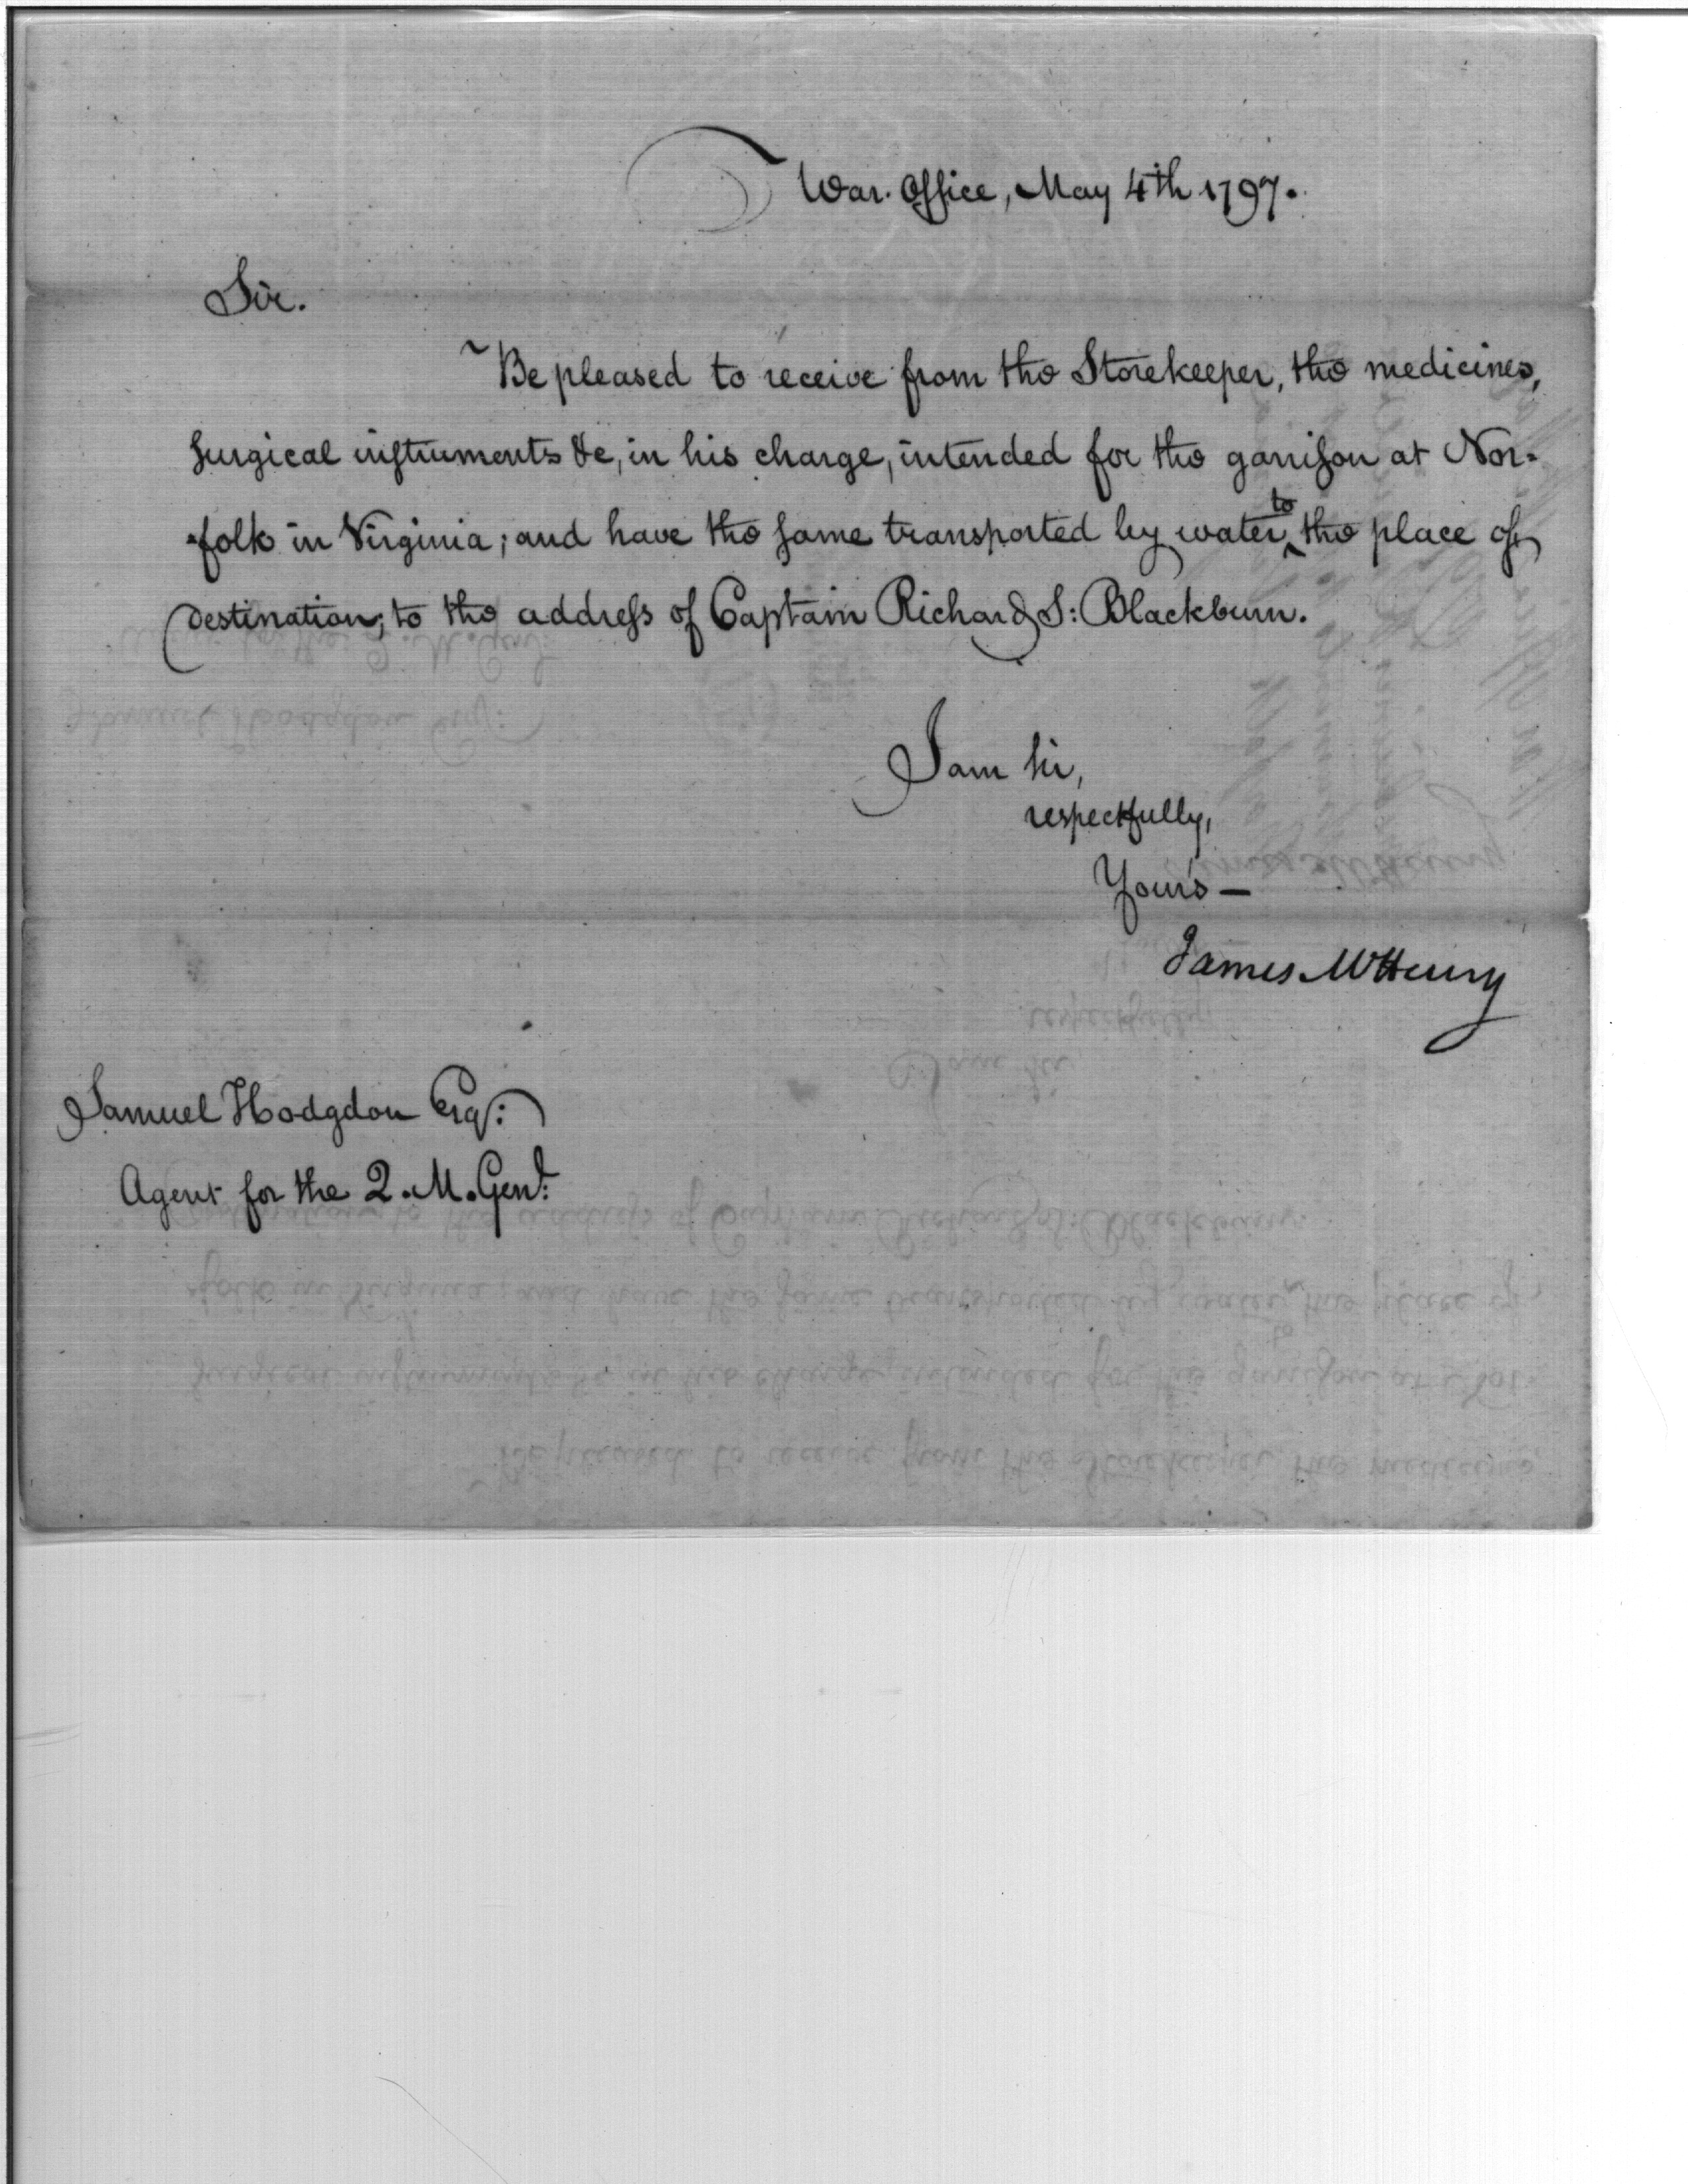 War Office, May 4th 1797.
Sir.
Be pleased to receive from the Storekeeper, the medicines,
surgical instruments &c, in his charge, intended for the garrison at Nor-
-folk in Virginia; and have the same transported by water to the place of
destination; to the address of Captain Richard S: Blackburn.
I am Sir,
respectfully,
Yours —
James McHenry
Samuel Hodgdon Esq:
Agent for the Q. M. Genl: